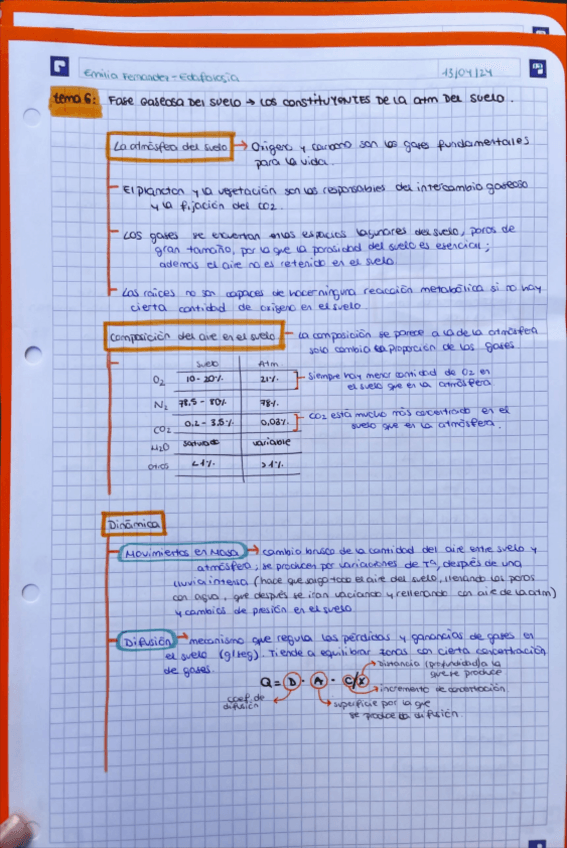 Emilia Fernandez - Edafología
13/04/24
tema 6: FASE GASEOSA DEL SUELO → LOS CONSTITUYENTES DE LA ATM DEL SUELO.
La atmósfera del suelo → Oxígeno y carbono son los gases fundamentales
para la vida.
El plancton y la vegetación son los responsables del intercambio gaseoso
y la fijación del CO2.
Los gases se encuentran en los espacios lagunares del suelo, poros de
gran tamaño, por lo que la porosidad del suelo es esencial;
además el aire no es retenido en el suelo
Las raíces no son capaces de hacer ninguna reacción metabólica si no hay
cierta cantidad de oxígeno en el suelo.
Composición del aire en el suelo - La composición se parece a la de la atmósfera
solo cambia la proporción de los gases
Suelo Atm
O2 10-20% 21% - siempre hay menor cantidad de O2 en
el suelo que en la atmósfera
N2 78.5 - 80% 78%
CO2 0.2 - 3.5% 0,03% CO2 está mucho más concentrado en el
suelo que en la atmósfera.
H2O saturado variable
Otros <1% >1%
Dinámica
Movimientos en Masa → cambio brusco de la cantidad del aire entre suelo y
atmósfera, se producen por variaciones de Tª, después de una
lluvia intensa (hace que salga todo el aire del suelo, llenando los poros
con agua, que después se irán vaciando y rellenando con aire de la atm)
y cambios de presión en el suelo
Difusión → mecanismo que regula las pérdidas y ganancias de gases en
el suelo (g/seg). Tiende a equilibrar zonas con cierta concentración
de gases.
Distancia (profundidad) a la
que se produce
Q = D · A · C/X
incremento de concentración.
coef. de
difusión
superficie por la que
se produce la difusión.